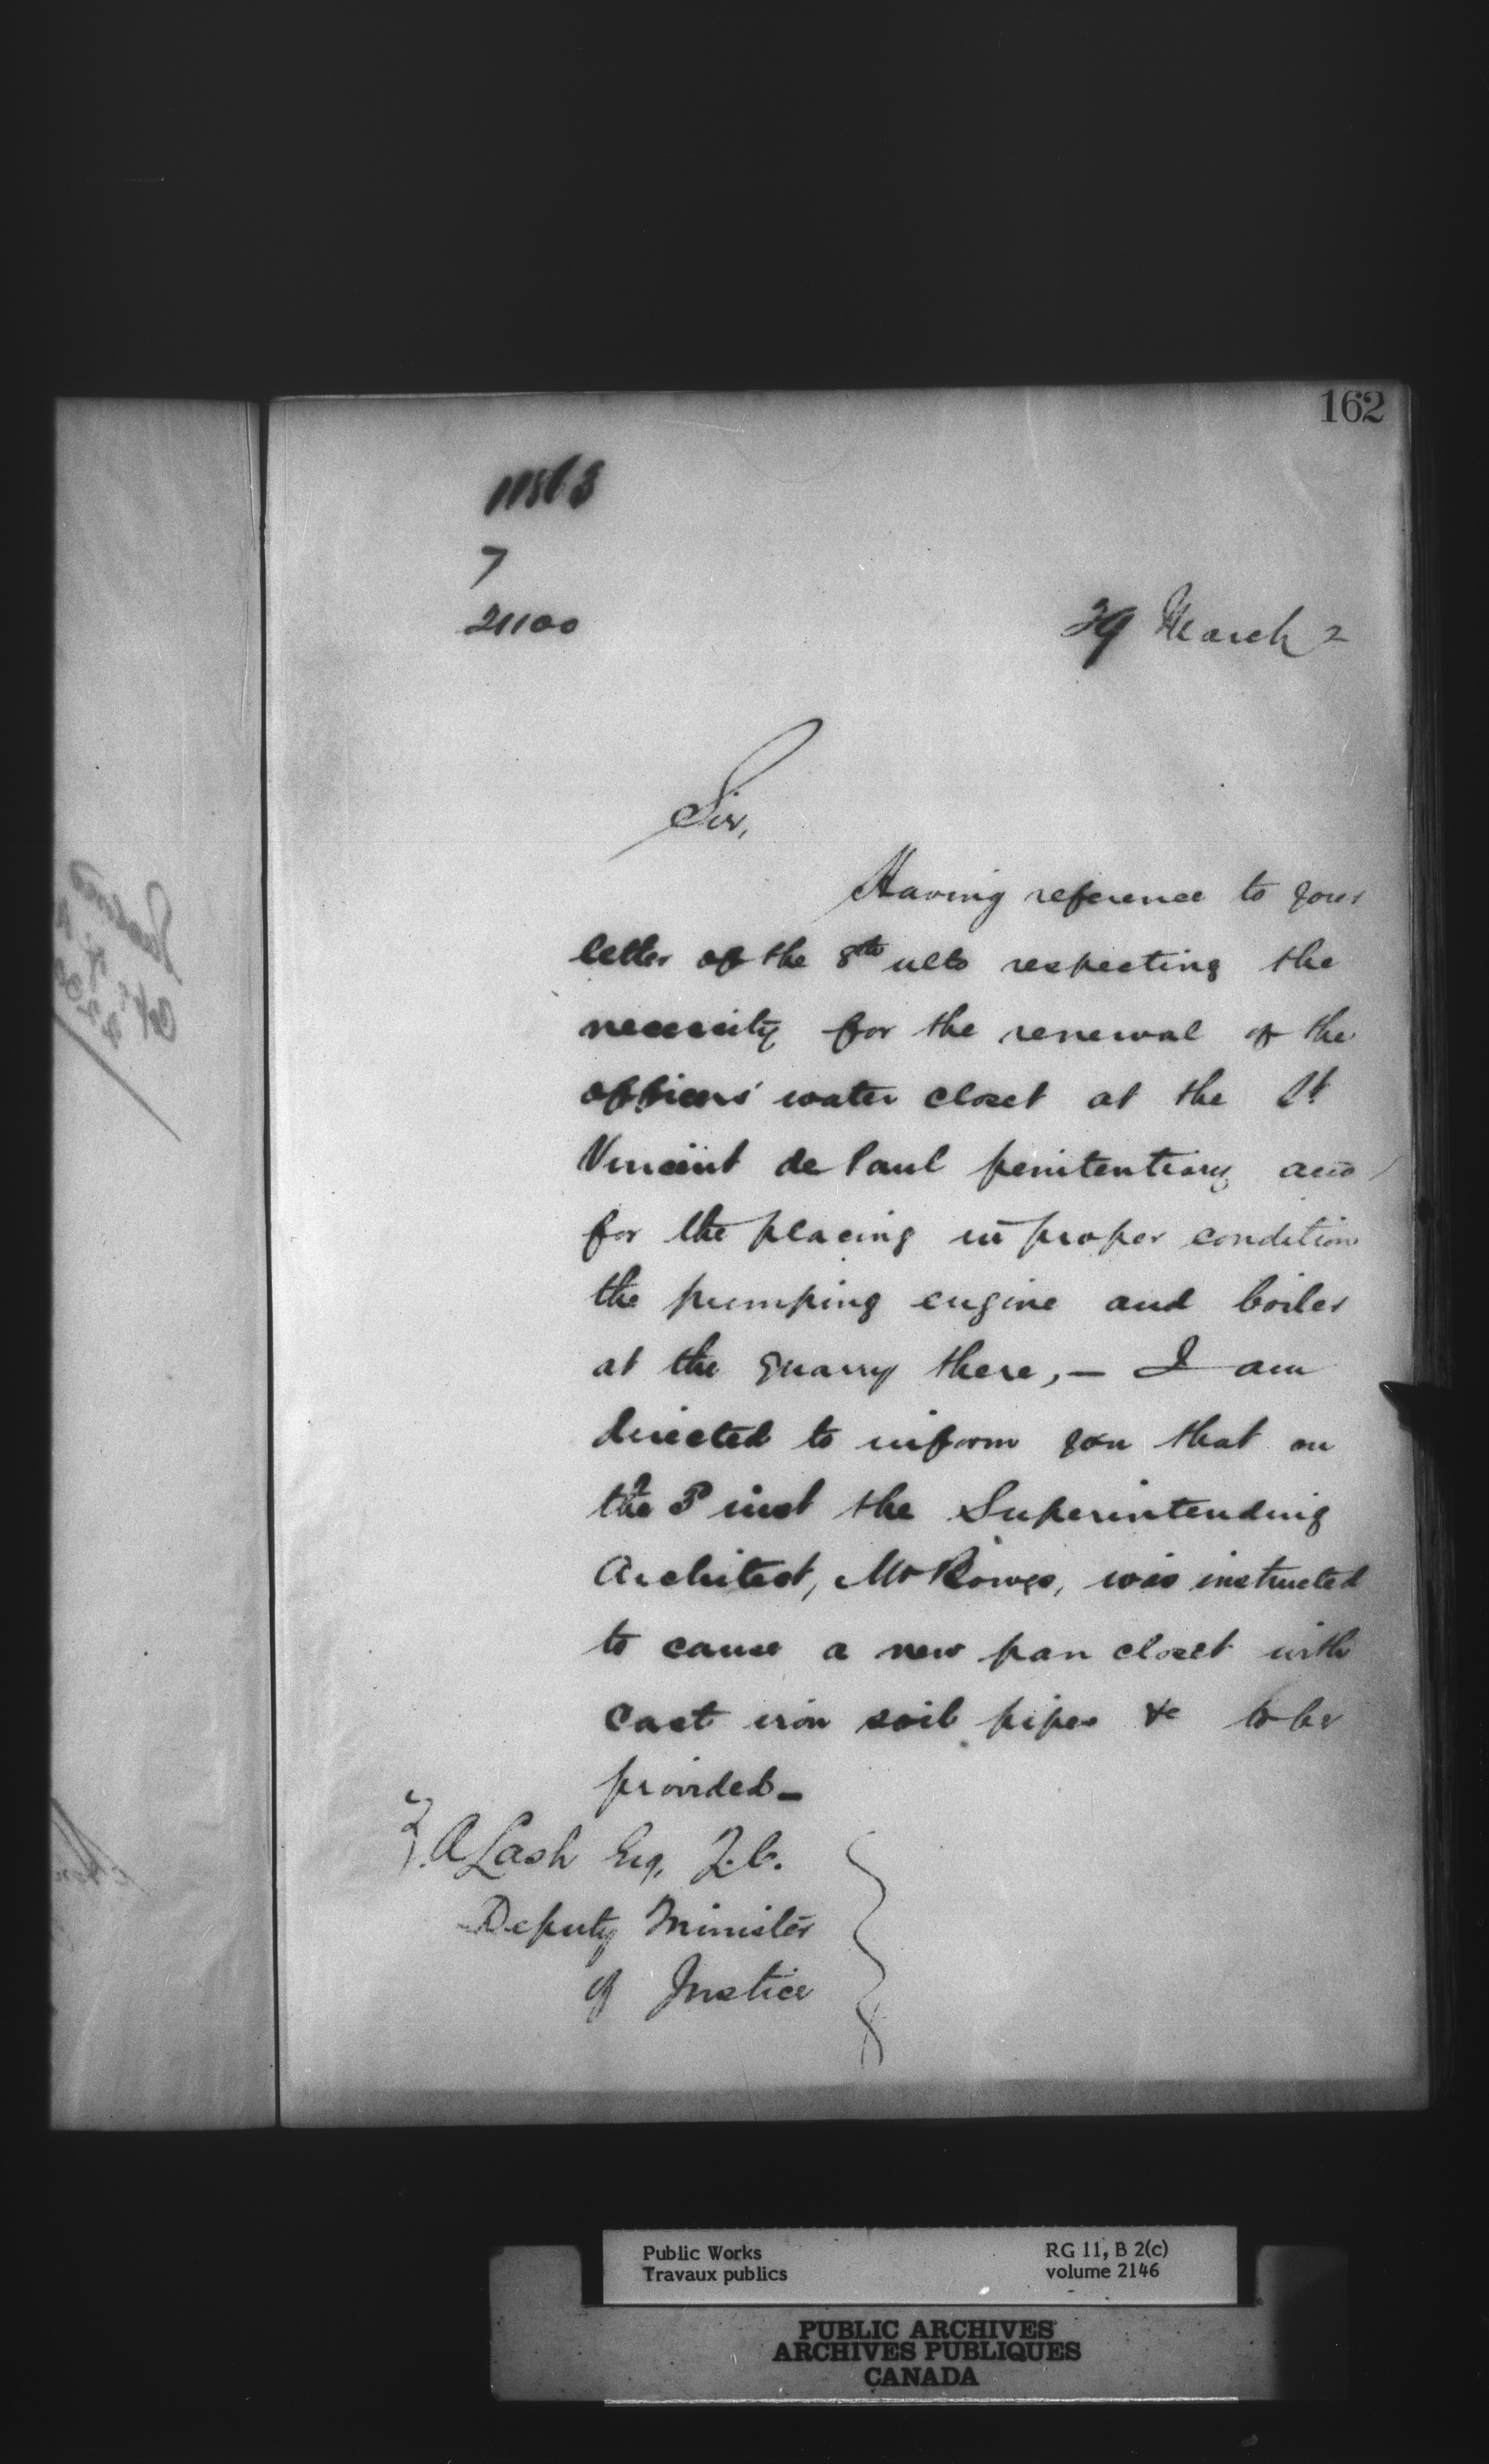 162
11863
7
21100
29 March 2
Sir,
Having reference to your
letter of the 8th ulto respecting the
necessity for the renewal of the
officers' water closet at the St
Vincent de Paul penitentiary and
for the placing in proper condition
the pumping engine and boiler
at the quarry there, — I am
directed to inform you that on
the inst the Superintending
Architect, Mr Bowes, was instructed
to cause a new pan closet with
cast iron soil pipes &c to be
provided —
Z. A Lash Esq, Q.C.
Deputy Minister
of Justice
Public Works
Travaux publics
RG 11, B 2(c)
volume 2146
PUBLIC ARCHIVES
ARCHIVES PUBLIQUES
CANADA